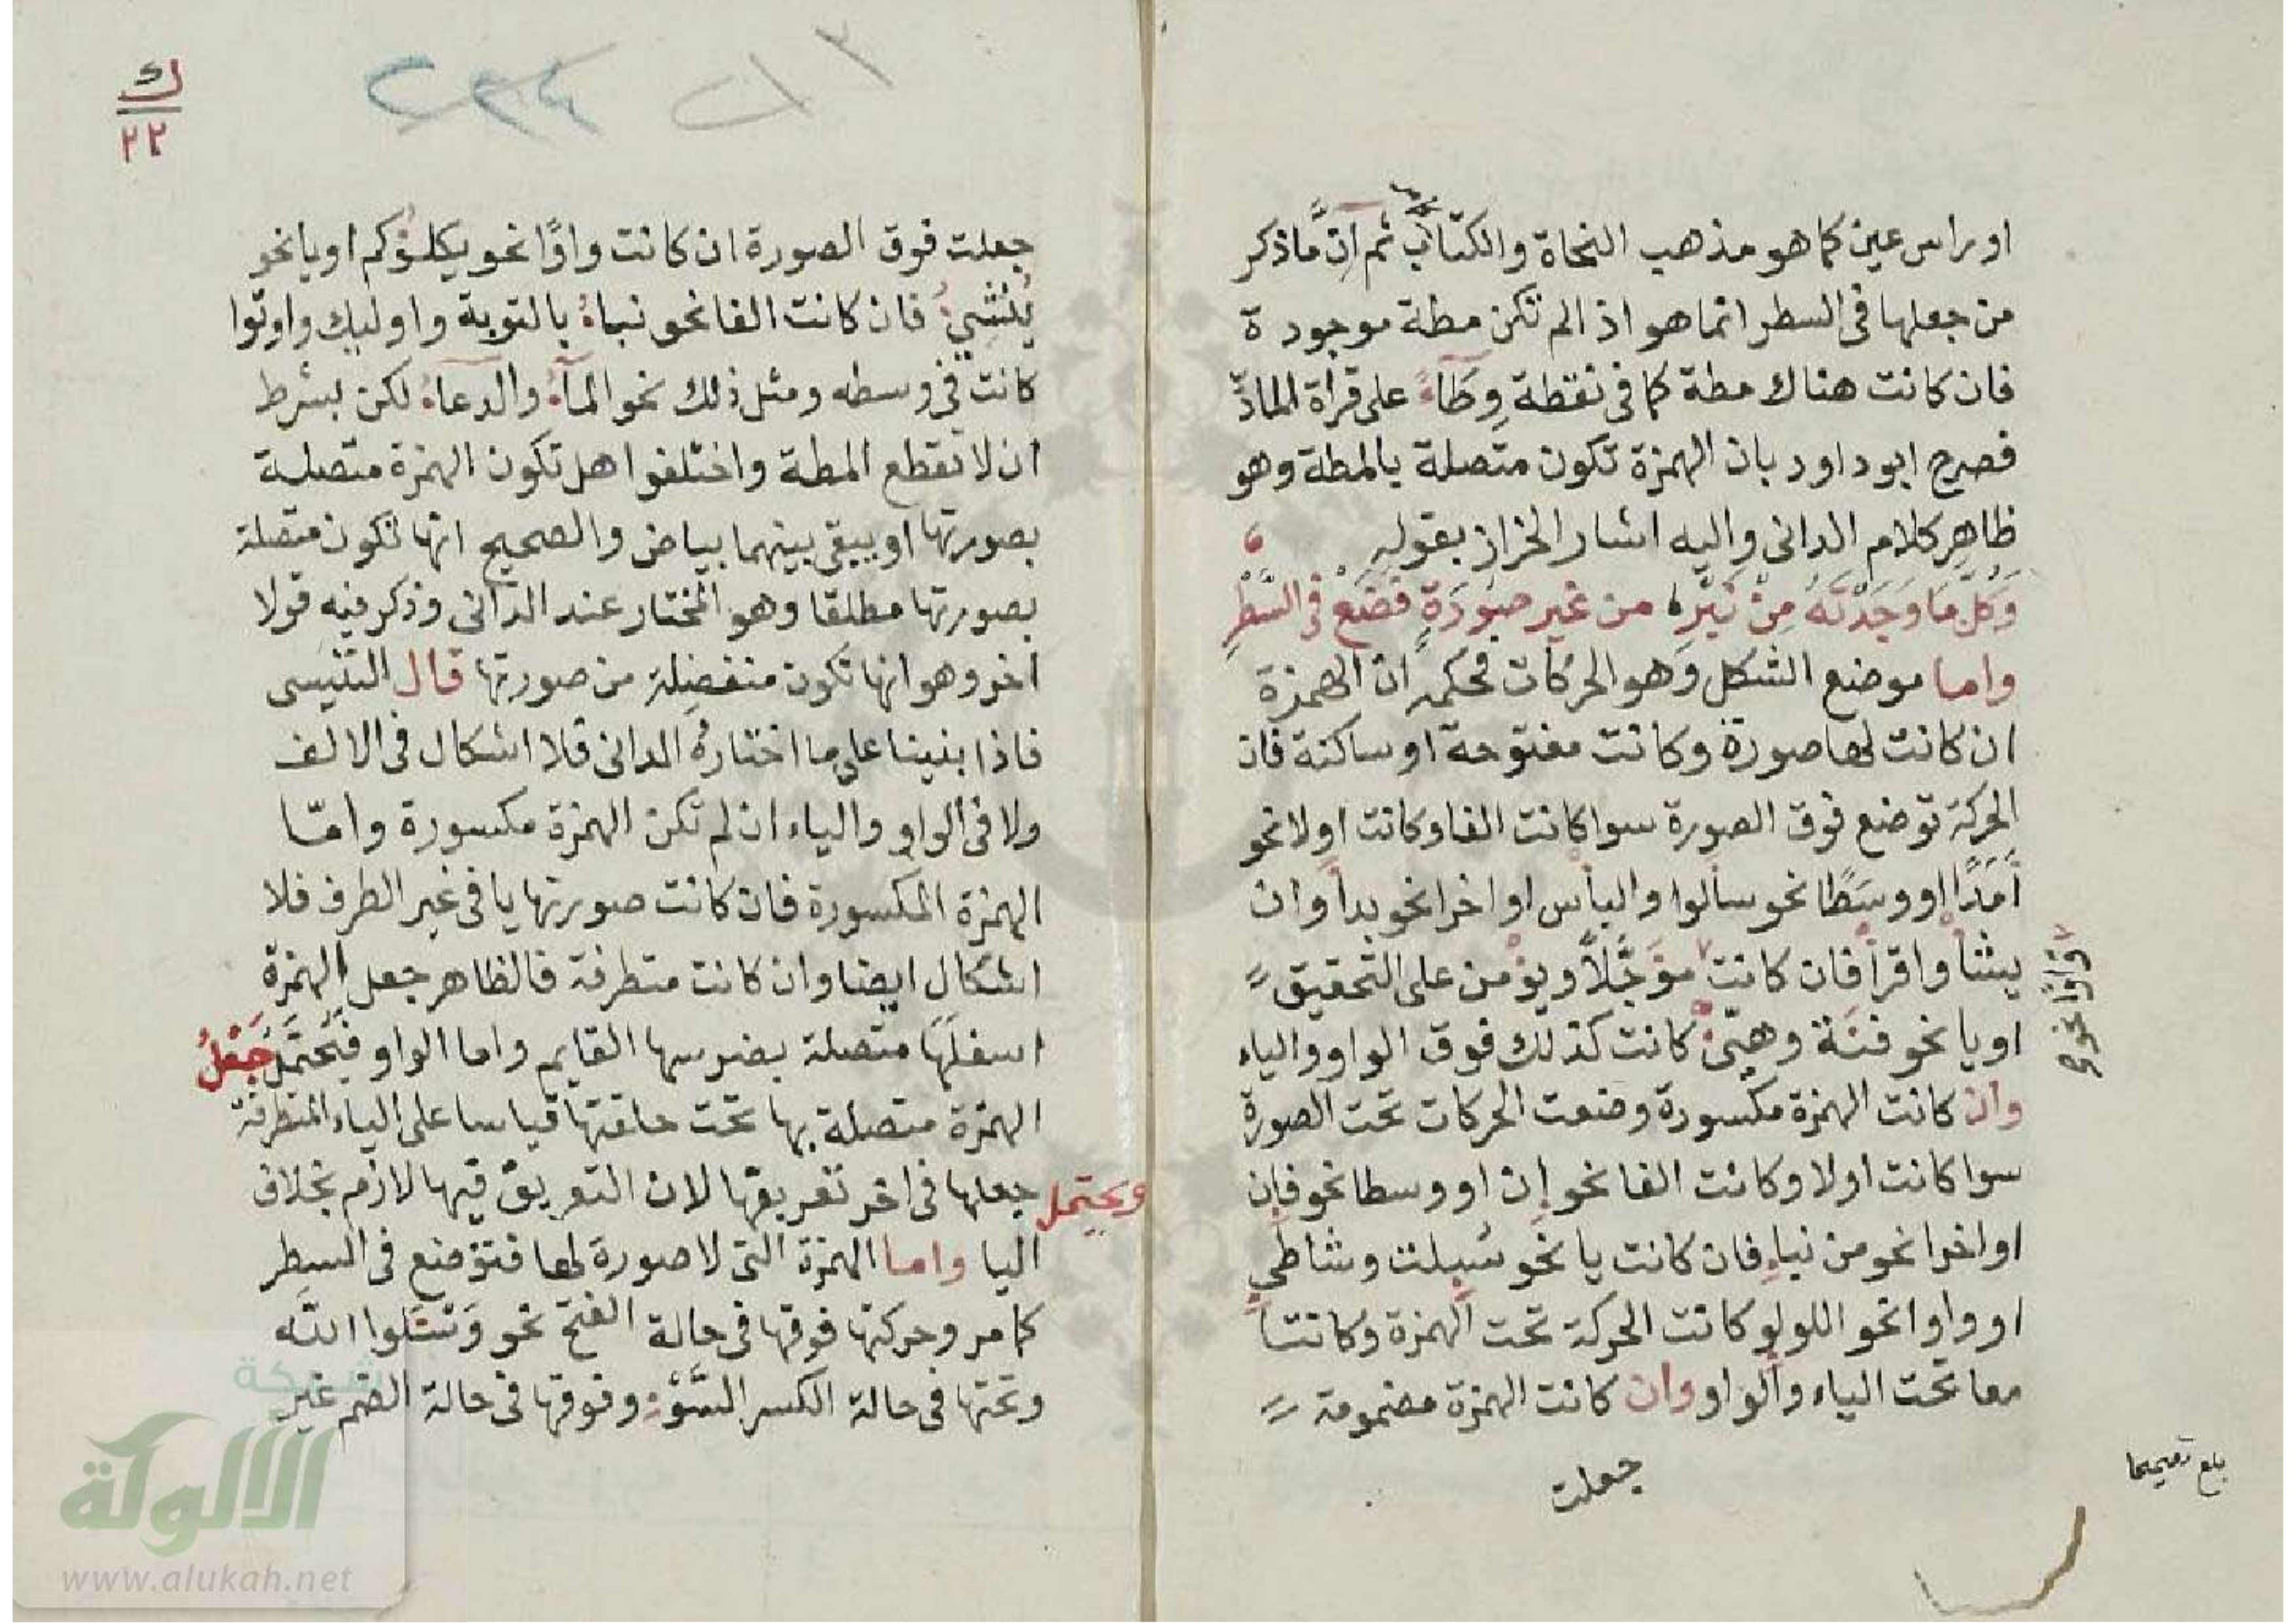 او براس عين كما هو مذهب النحاة والكتاب ثم ان ما ذكر
من جعلها فى السطر انما هو اذا لم تكن مطة موجودة
فان كانت هناك مطة كما فى نقطة وِطَآءً على قرأة المادّ
فصرح ابو داود بان الهمزة تكون متصلة بالمطة وهو
ظاهر كلام الدانى واليه اشار الخراز بقوله
وَكُلُّ مَا وَجَدْتَهُ مِنْ نَبْرِه من غير صورَةٍ فضَعْ فى السَّطْرِ
واما موضع الشكل وهو الحركات فحكمه ان الهمزة
ان كانت لها صورة وكانت مفتوحة او ساكنة فان
الحركة توضع فوق الصورة سوا كانت الفا وكانت اولا نحو
أَمَدًا او وسَطًا نحو سألوا والبأس او اخرا نحو بدأ وان
يشأ واقرأ فان كانت مؤجَّلاً ويؤمن على التحقيق
واوا نحو
او يا نحو فئة وهيّئ كانت كذلك فوق الواو والياء
وان كانت الهمزة مكسورة وضعت الحركات تحت الصورة
سوا كانت اولا وكانت الفا نحو إن او وسطا نحو فإن
او اخرا نحو من نبإ فان كانت يا نحو سُيلت وشاطئ
او واوا نحو اللولو كانت الحركة تحت الهمزة وكانتا
معا تحت الياء والواو وان كانت الهمزة مضمومة
جعلت
بلغ تصحيحا
ك
٢٢
جعلت فوق الصورة ان كانت واوًا نحو يكلؤكم او يا نحو
يُنشِئُ فان كانت الفا نحو نبأُ بالتوبة واوليك واوتوا
كانت فى وسطه ومثل ذلك نحو المآءُ والدعآءُ لكن بشرط
ان لا تقطع المطة واختلفوا هل تكون الهمزة متصلة
بصورتها او يبقى بينهما بياض والصحيح انها تكون متصلة
بصورتها مطلقا وهو المختار عند الدانى وذكر فيه قولا
اخر وهو انها تكون منفصلة من صورتها قال التنيسى
فاذا بنينا على ما اختاره الدانى فلا اشكال فى الالف
ولا فى الواو والياء ان لم تكن الهمزة مكسورة وامّا
الهمزة المكسورة فان كانت صورتها يا فى غير الطرف فلا
اشكال ايضا وان كانت متطرفة فالظاهر جعل الهمزة
اسفلها متصلة بضرسها القايم واما الواو فيحتمل جَعْلُ
الهمزة متصلة بها تحت حلقتها قياسا على الياء المتطرفة
ويحتمل جعلها فى اخر تعريقها لان التعريق فيها لازم بخلاف
اليا واما الهمزة التى لا صورة لها فتوضع فى السطر
كما مر وحركتها فوقها فى حالة الفتح نحو وَسْـَٔلوا الله
وتحتها فى حالة الكسر السُّوْءِ وفوقها فى حالة الضم غير
شبكة
الألوكة
www.alukah.net